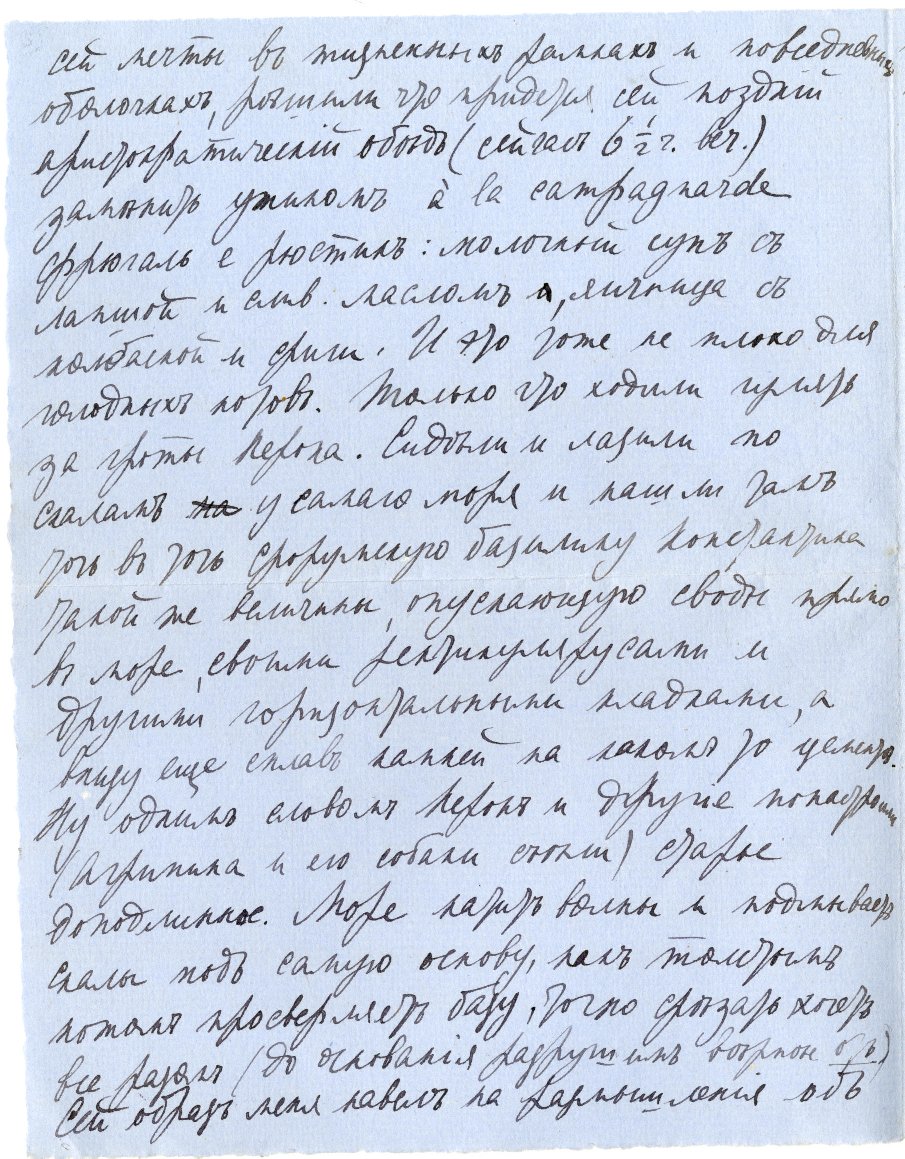 сей мечты въ жизненныхъ рамкахъ и повседневныхъ
оболочкахъ, рѣшили что придется сей поздній
аристократическій обѣдъ (сейчасъ 6 1/2 ч. веч.)
замѣнить ужиномъ à la campagnarde
фрюгаль е рюстикъ: молочный супъ съ
лапшой и слив. масломъ, яичница съ
колбасой и фиги. И это тоже не плохо для
голодныхъ котовъ. Только что ходили гулять
за гроты Нерона. Сидѣли и лазили по
скаламъ на у самаго моря и нашли тамъ
точь въ точь форумскую базилику Константина
такой же величины, опускающую своды прямо
въ море, своими ретикулярусами и
другими горизонтальными кладками, а
внизу еще сплавъ камней на какомъ то цементѣ.
Ну однимъ словомъ Неронъ и другіе понастроили
(Агрипина и его собаки) старые
доподлинное. Море катитъ волны и подмываетъ
скалы подъ самую основу, какъ толстымъ
ножомъ просверляетъ базу, точно срѣзать хочетъ
все разомъ (до основанія разрушимъ)
Сей образъ меня навелъ на размышленія объ